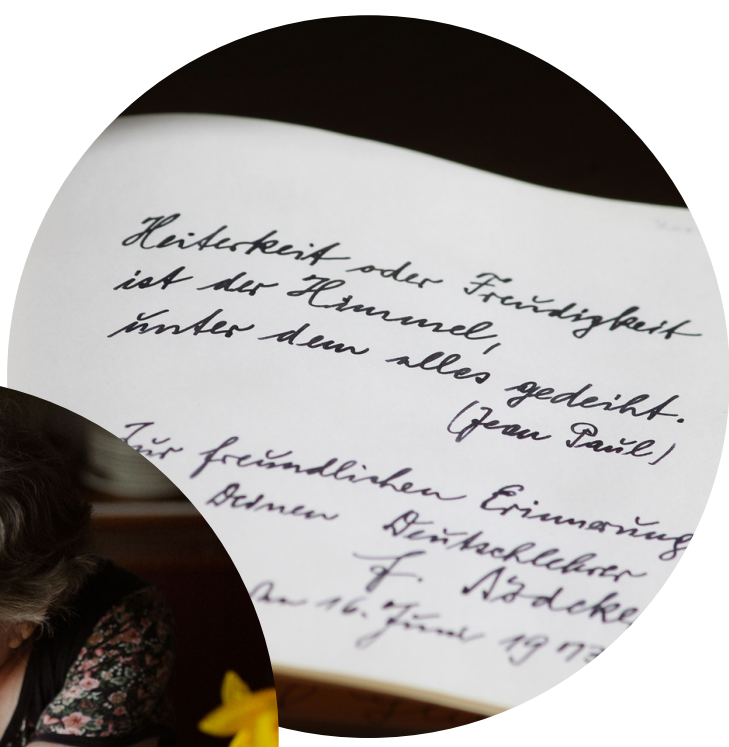 Heiterkeit oder Freudigkeit
ist der Himmel,
unter dem alles gedeiht.
(Jean Paul)
Zur freundlichen Erinnerung
Deinen Deutschlehrer
F.
16. Juni 1973